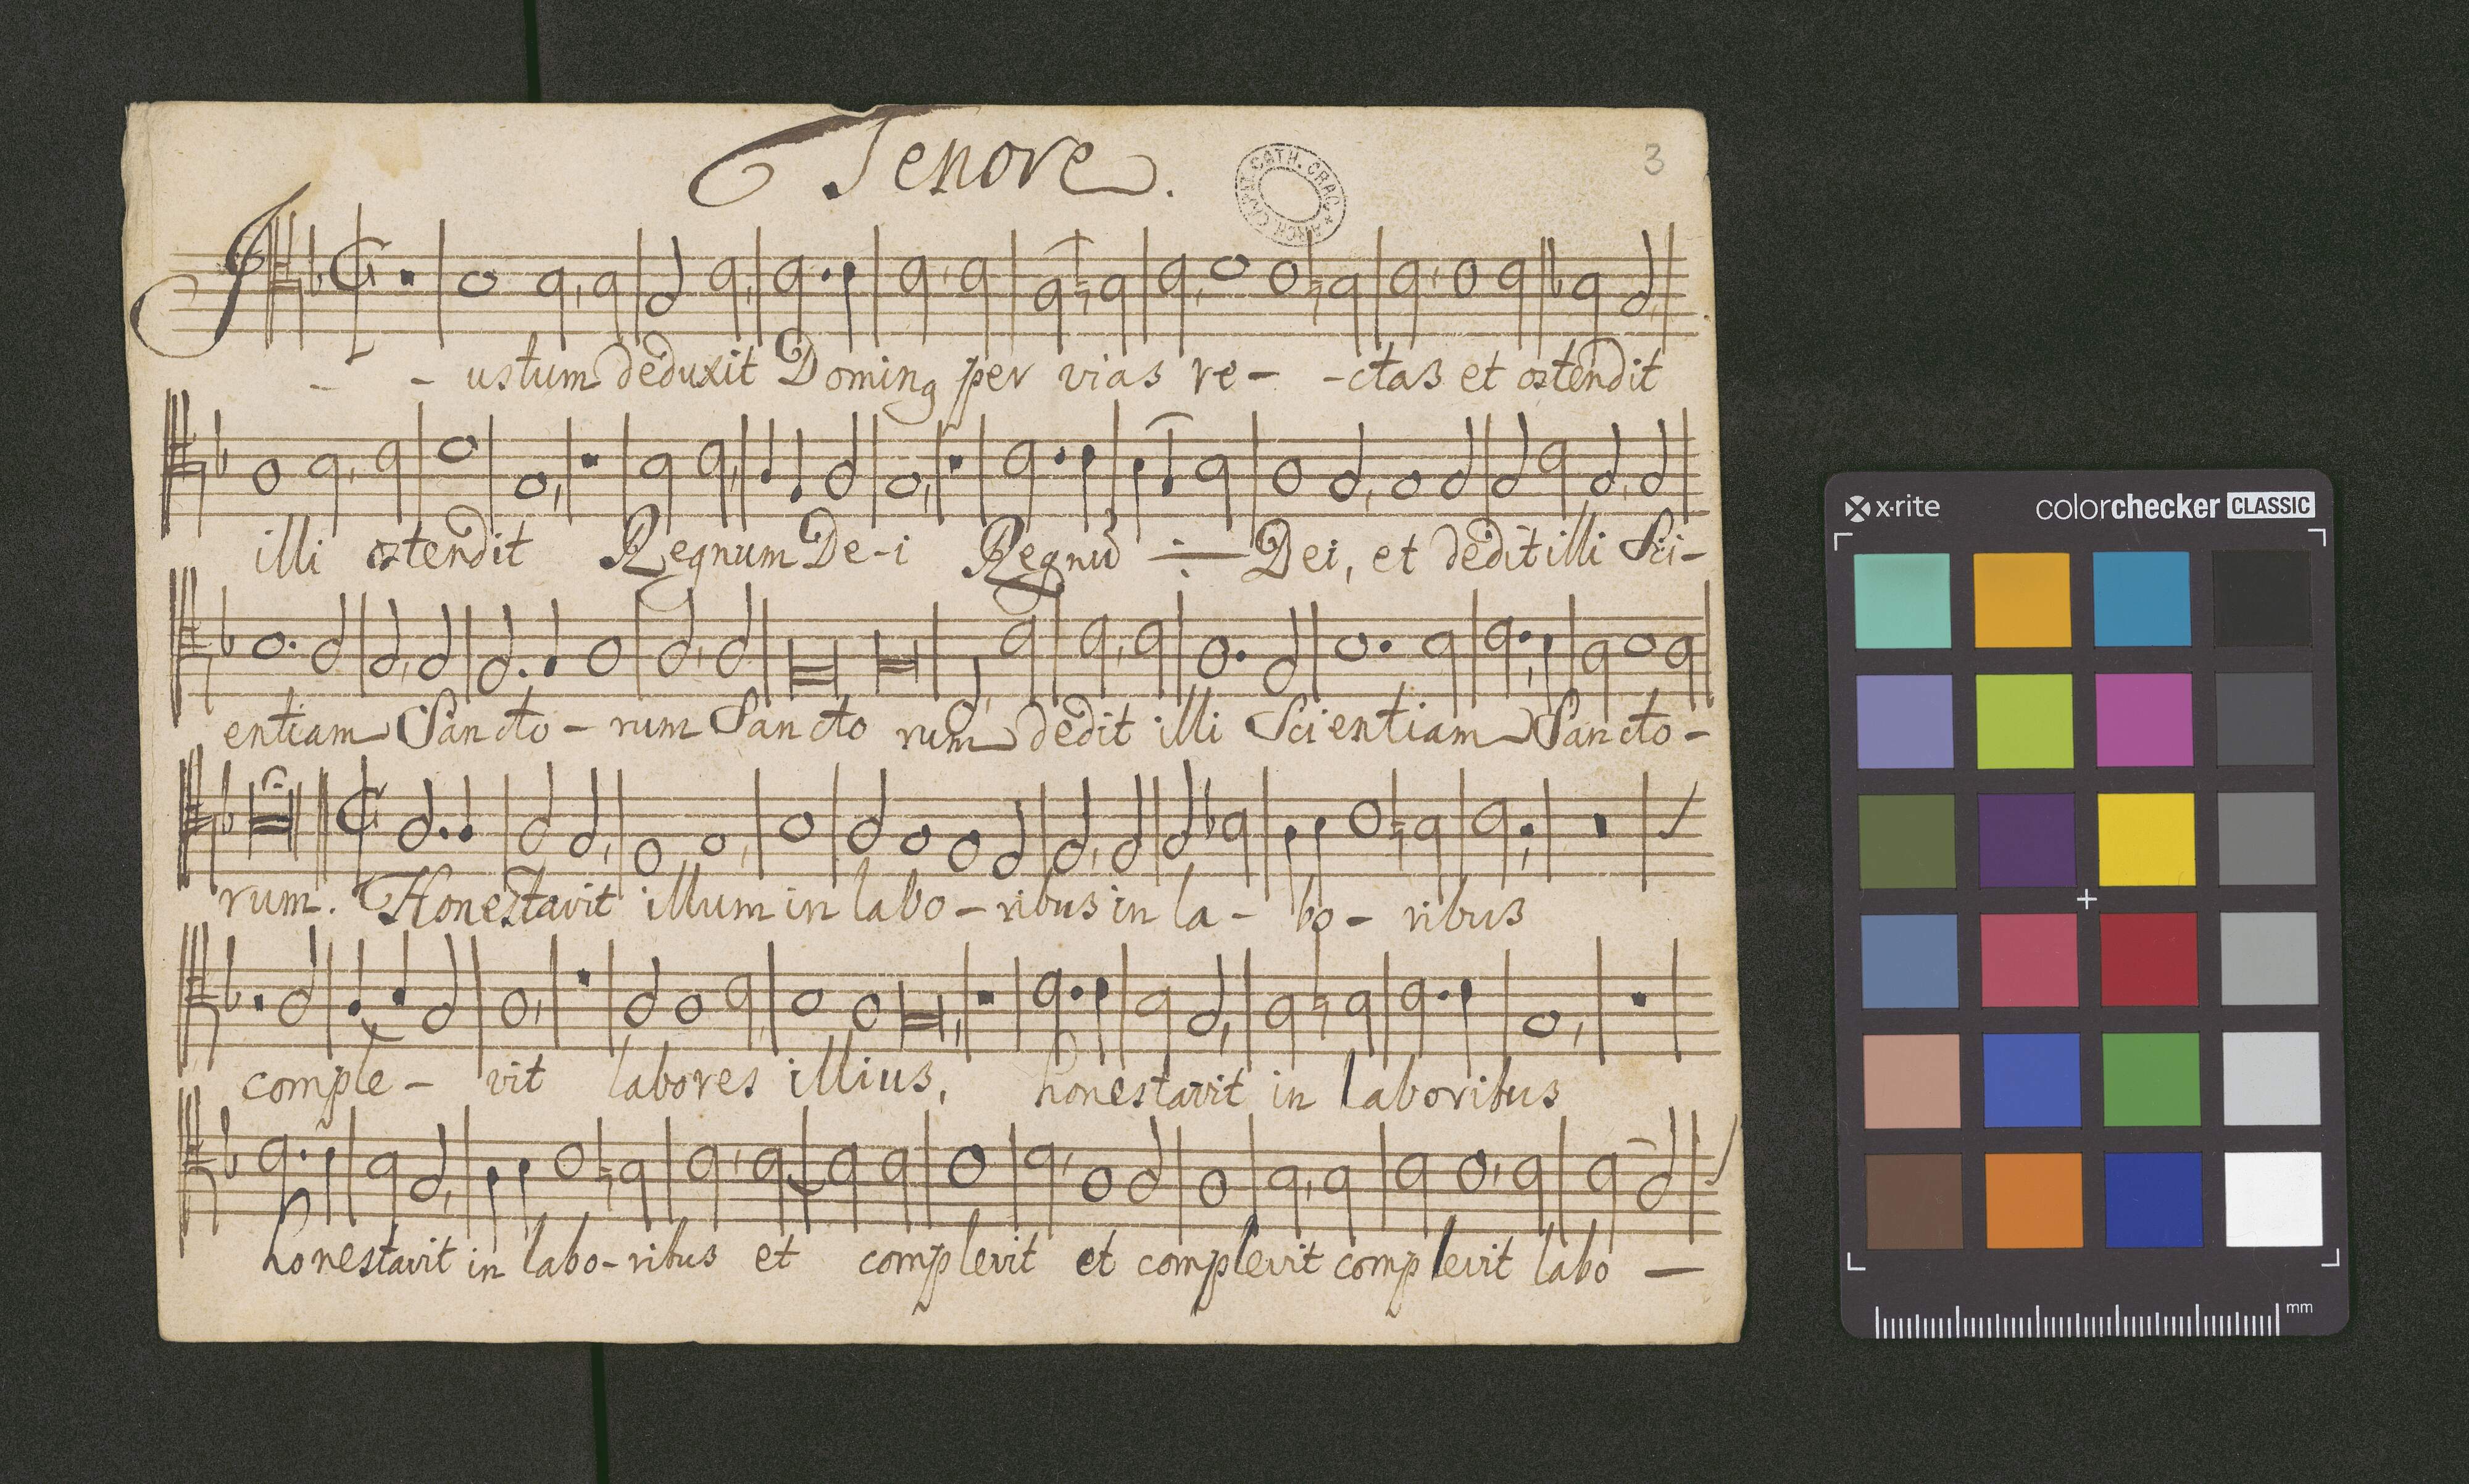 Tenore.
3
ARCH. CAPIT. CATH. CRAC.
I - - ustum deduxit Domin9 per vias re- -ctas et ostendit
illi ostendit Regnum De-i Regnũ ÷ Dei, et dedit illi Sci-
entiam Sancto-rum Sancto rum dedit illi Scientiam Sancto-
rum. Honestavit illum in labo-ribus in la- bo- ribus
comple- vit labores illius, honestavit in laboribus
honestavit in labo-ribus et complevit et complevit complevit labo -
x-rite colorchecker CLASSIC
mm